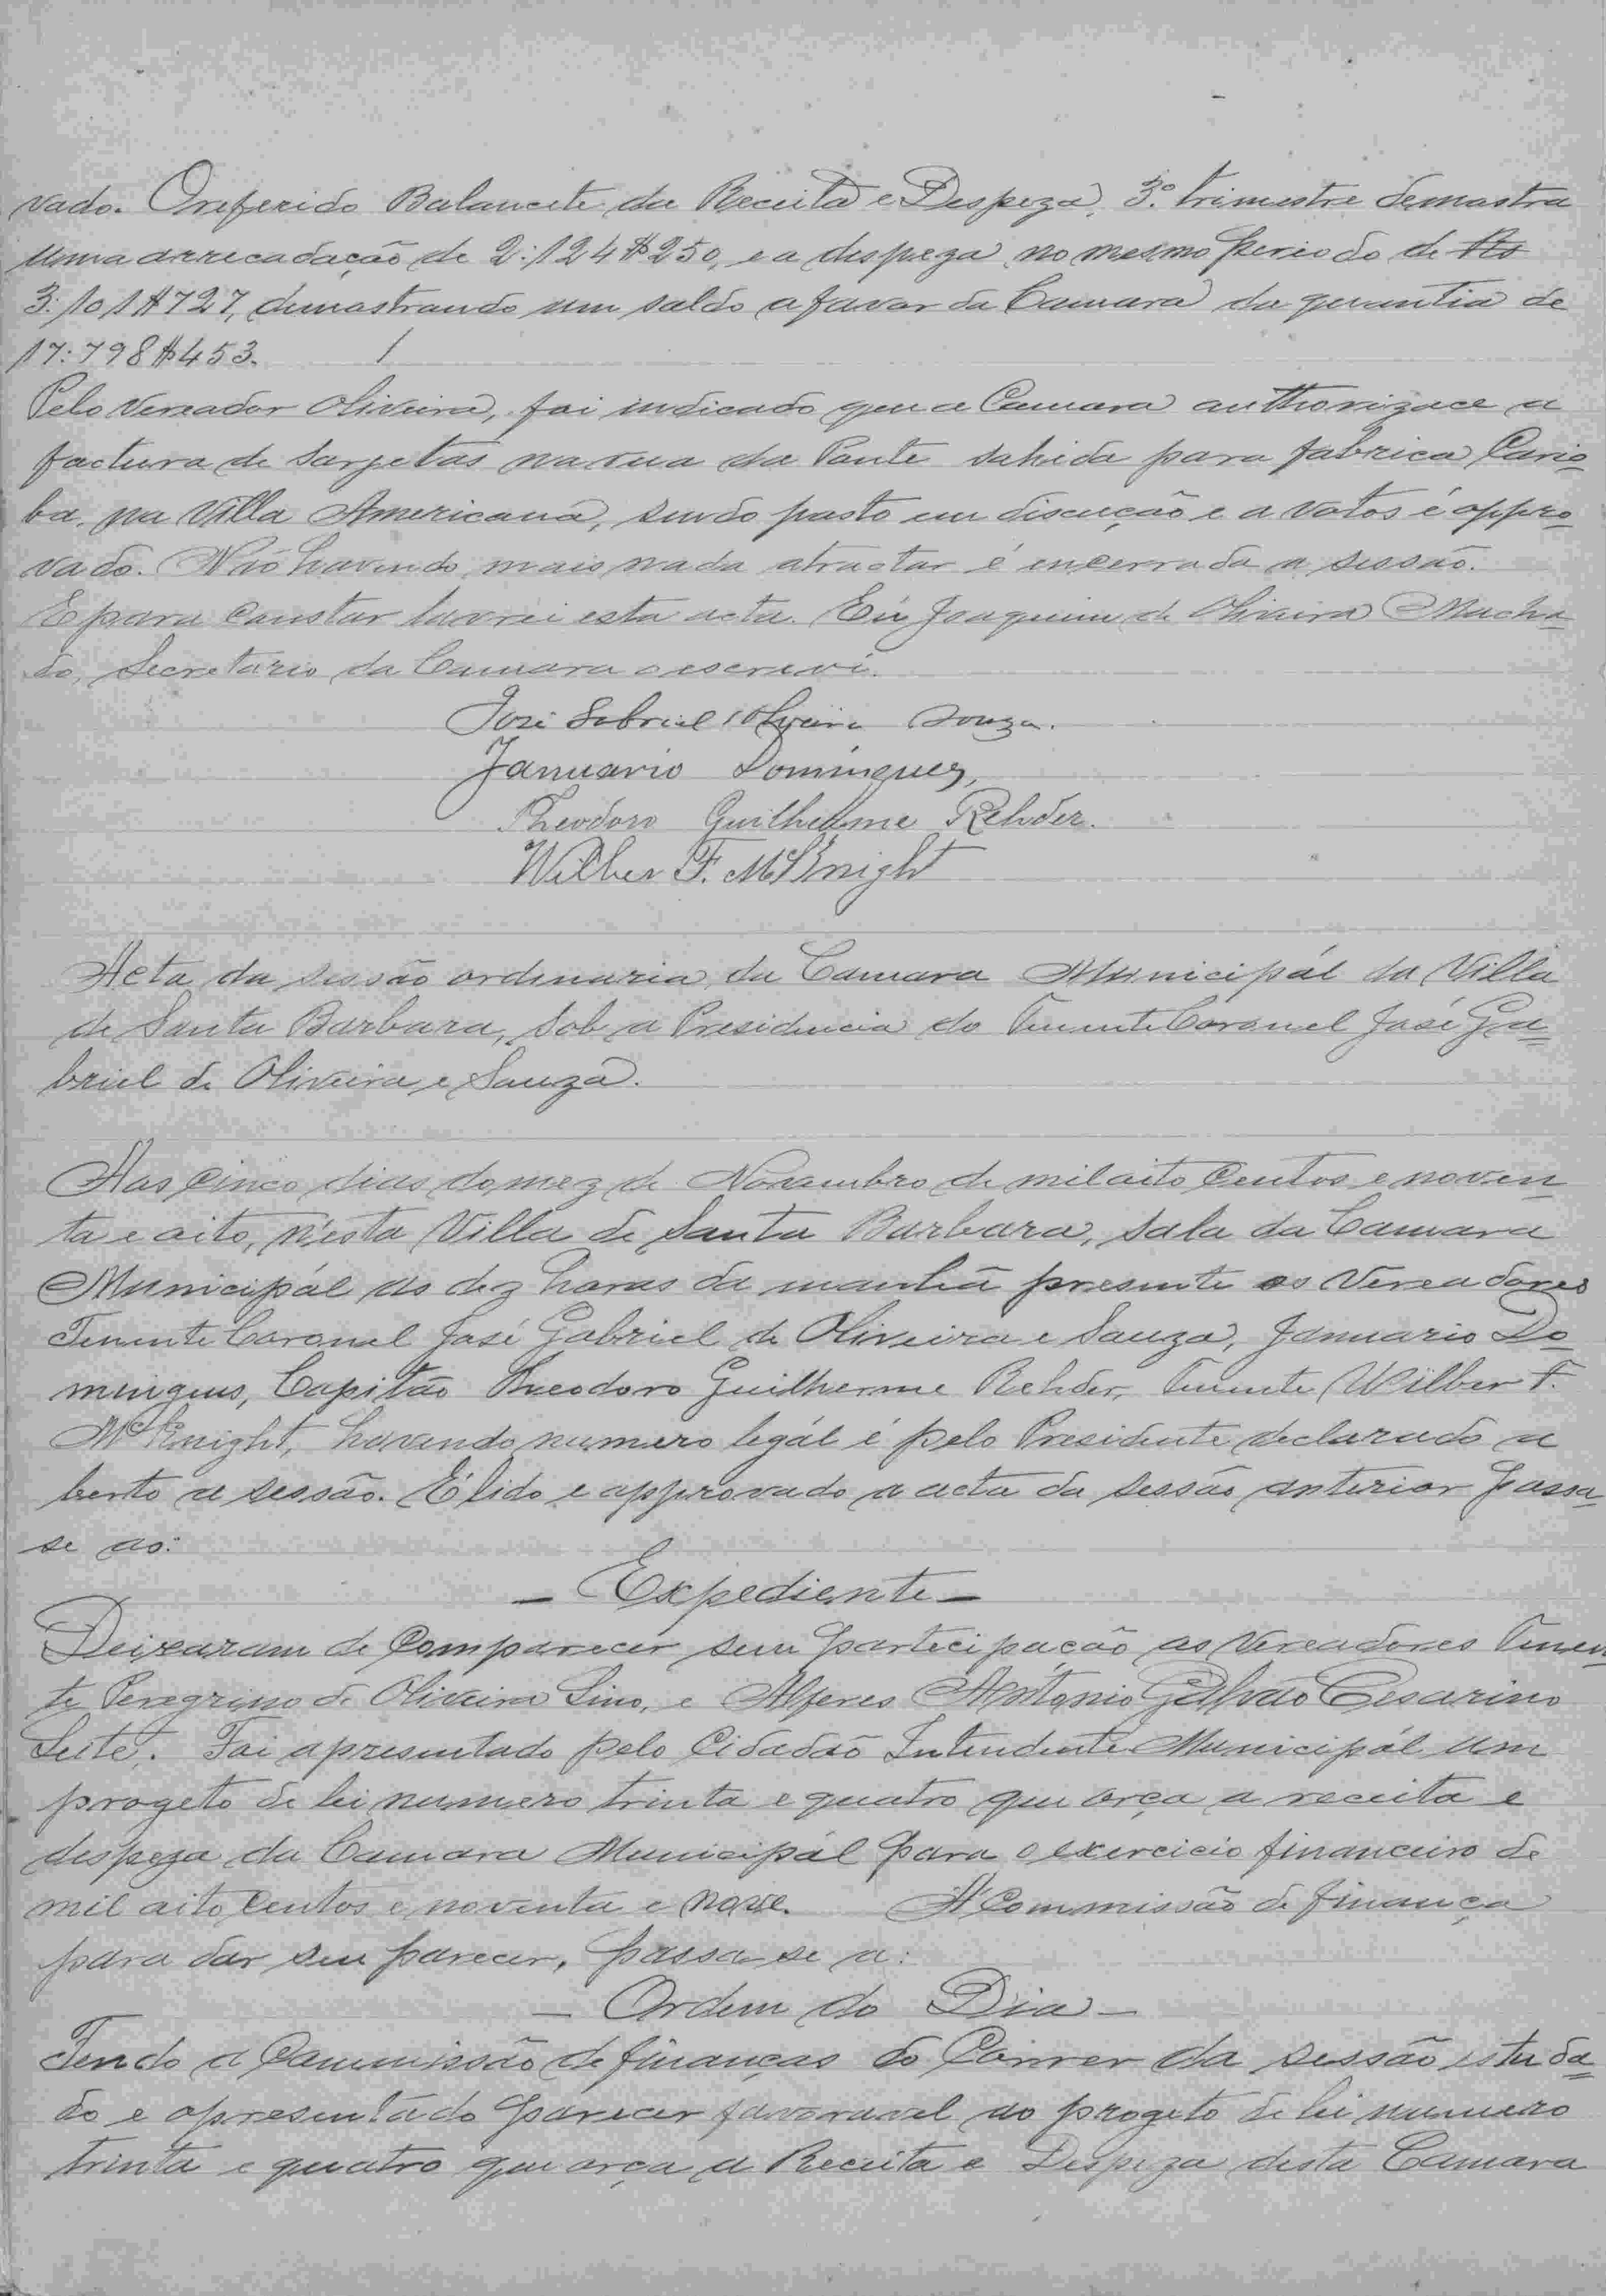 vado. O referido Balancete da Receita e Despeza, 3.º trimestre demostra
uma arrecadação de 2:124$250, e a despeza no mesmo periodo de
3:101$727, demostrando um saldo a favor da Camara da quantia de
17:798$453.
Pelo Vereador Oliveira, foi indicado que a Camara authorizace a
factura de sargetas na rua da Ponte sahida para fabrica Cario=
ba, na Villa Americana, sendo posto em discução e a votos é appro=
vado. Não havendo mais nada atractar é encerrada a sessão.
E para constar lavrei esta acta. Eu Joaquim de Oliveira Macha=
do, Secretario da Camara o escrevi.
José Gabriel Oliveira Souza.
Januario Domingues,
Theodoro Guilherme Rehder.
Wilber F. McKnight
Acta da sessão ordinaria da Camara Municipál da Villa
de Santa Barbara, sob a Presidencia do Tenente Coronel José Ga=
briel de Oliveira e Souza.
Aos cinco dias do mez de Novembro de mil oito centos e noven=
ta e oito, n'esta Villa de Santa Barbara, sala da Camara
Municipál as dez horas da manhã presente os Vereadores
Tenente Coronel José Gabriel de Oliveira e Souza, Januario Do=
mingues, Capitão Theodoro Guilherme Rehder, Tenente Wilber F.
McKnight, havendo numero legál é pelo Presidente declarado a
berto a sessão. É lido e approvado a acta da sessão anterior passa=
se ao:
— Expediente —
Deixaram de comparecer sem participação os Vereadores Tenen
te Peregrino de Oliveira Lino, e Alferes Antonio Galvão Cesarino
Leite. Foi apresentado pelo Cidadão Intendente Municipál um
progeto de lei numero trinta e quatro que orça a receita e
despeza da Camara Municipál para o exercicio financeiro de
mil oito centos e noventa e nove. A' Commissão de finança
para dar seu parecer, passa se a:
— Ordem do Dia —
Tendo a Commissão de finanças do correr da sessão estuda=
do e apresentado parecer favoravel ao progeto de lei numero
trinta e quatro que orça a Receita e Despeza desta Camara